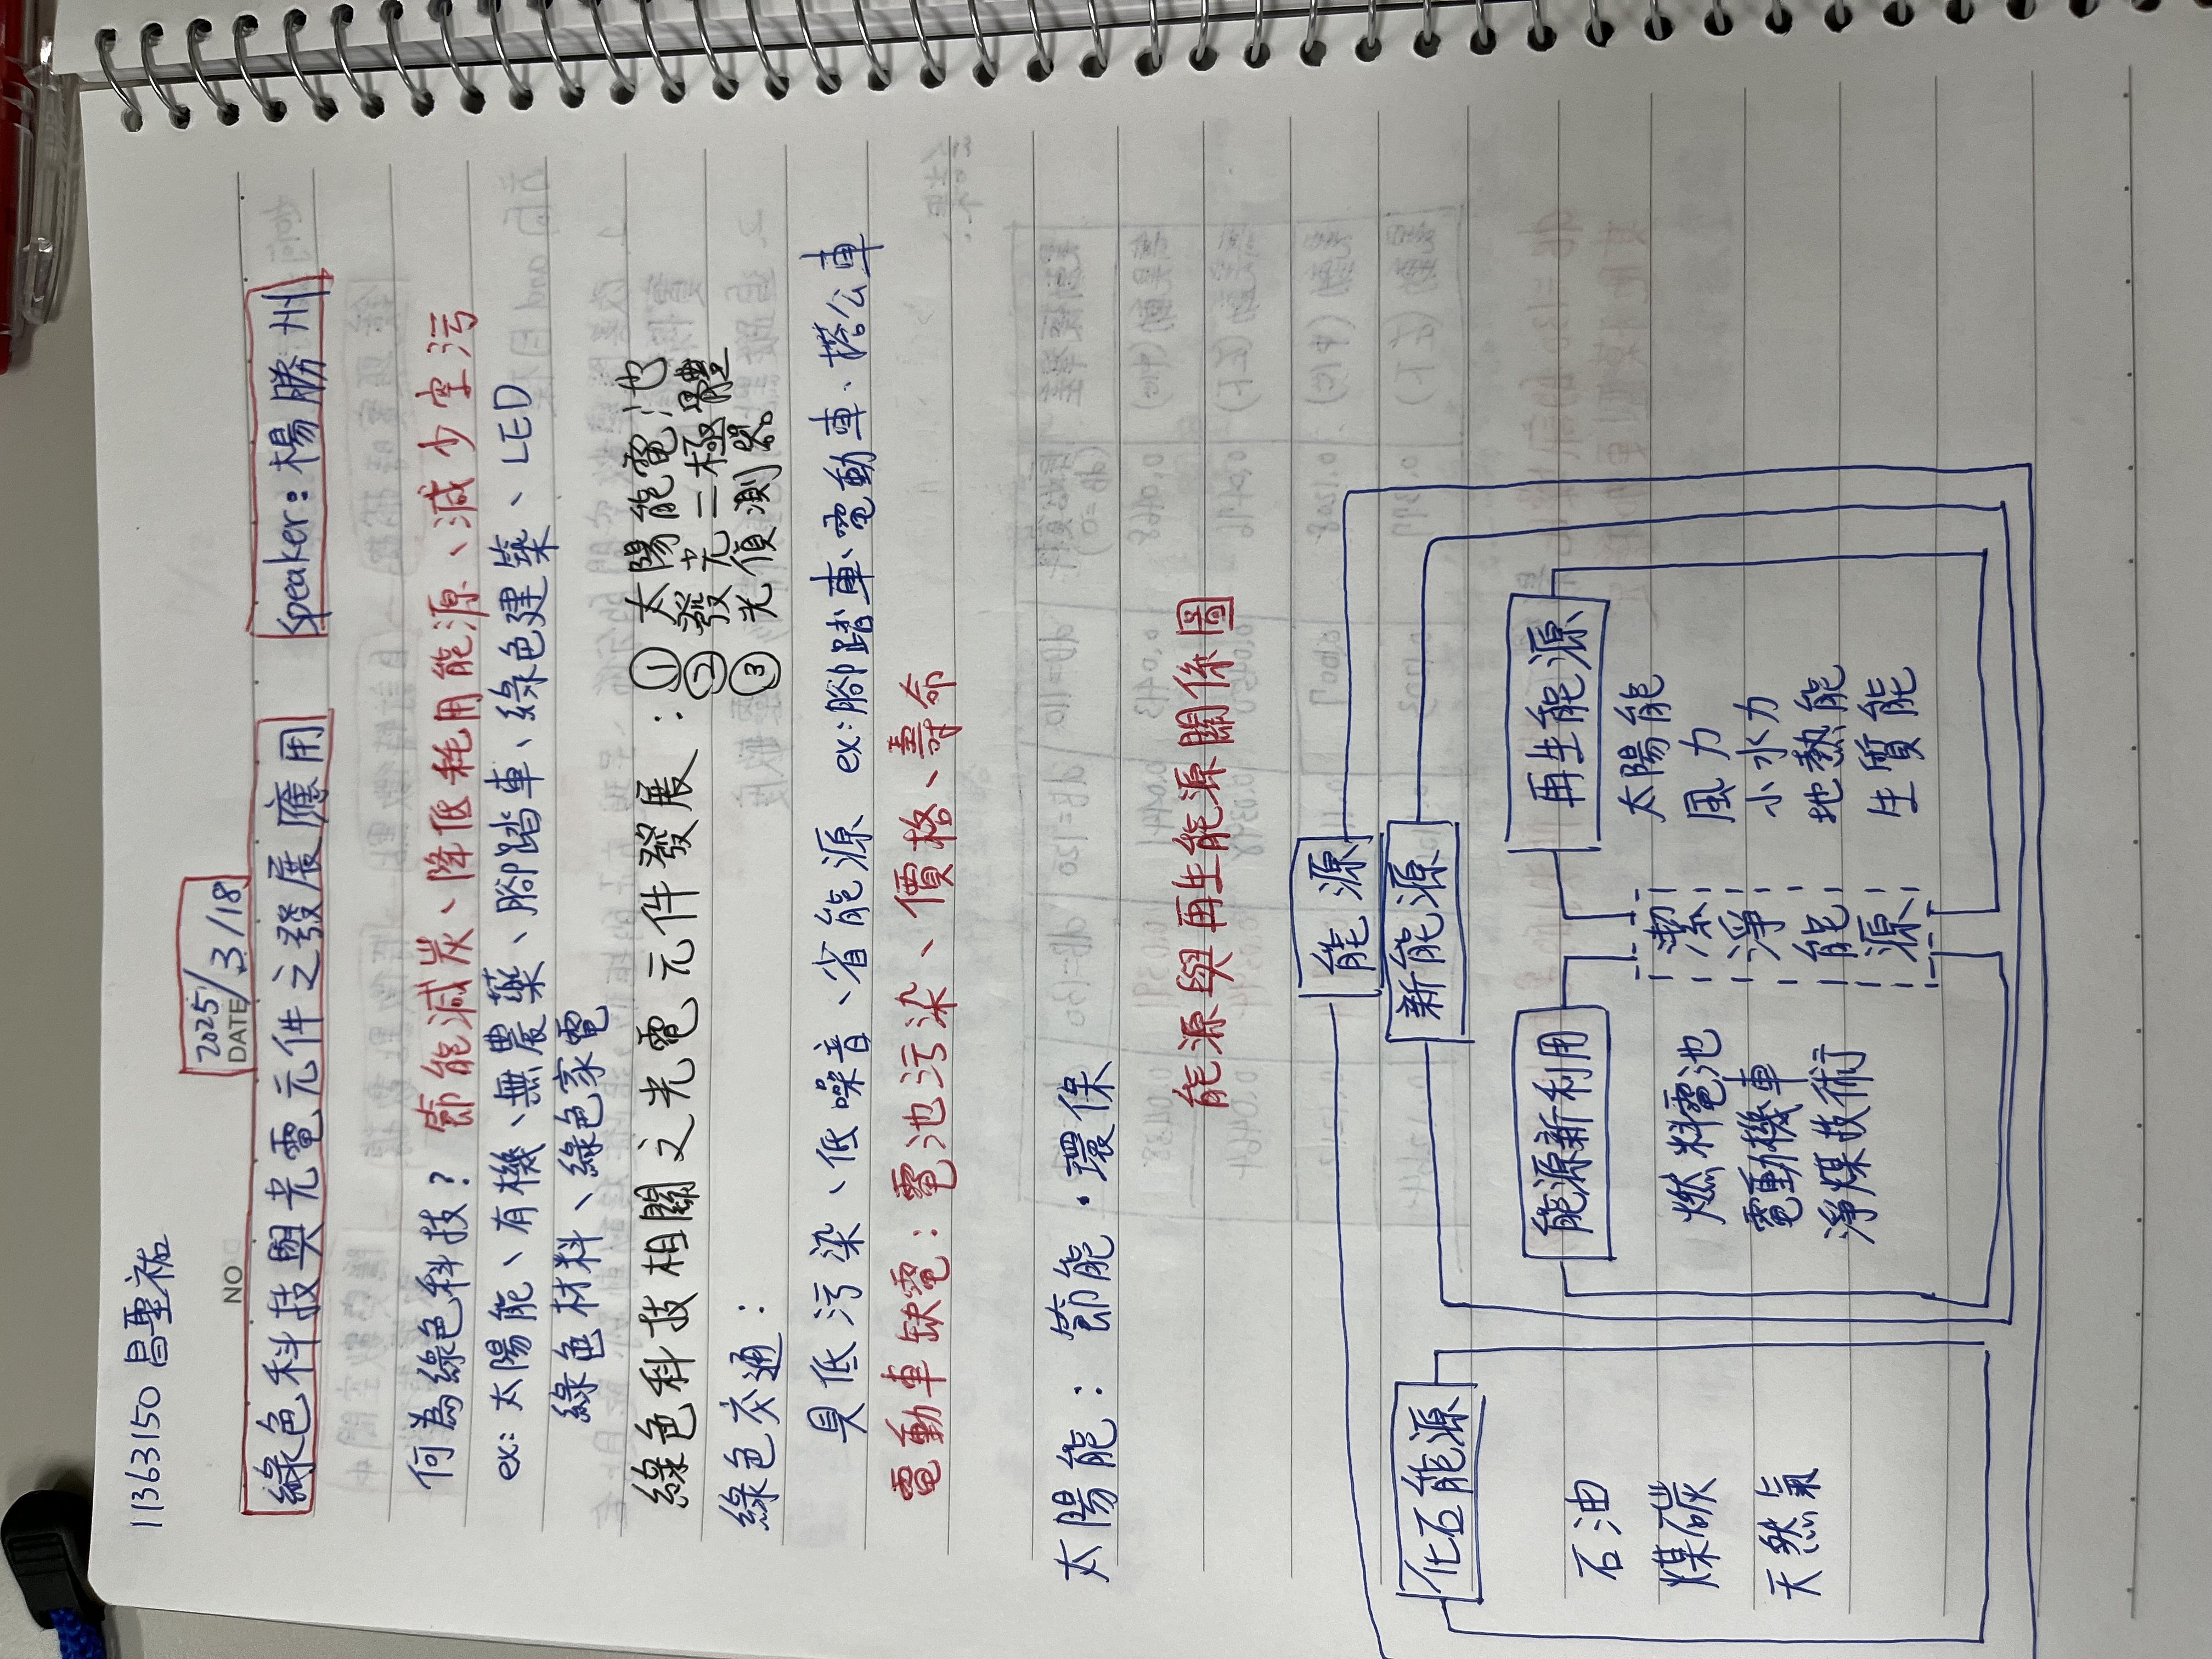 11363150 昌聖祐
NO
2025/3/18
DATE
綠色科技與光電元件之發展應用 speaker：楊勝州
何為綠色科技？節能減炭、降低耗用能源、減少空污
ex: 太陽能、有機、無農藥、腳踏車、綠色建築、LED
綠色材料、綠色家電
綠色科技相關之光電元件發展：① 太陽能電池
② 發光二極體
③ 光偵測器
綠色交通：
具低污染、低噪音、省能源 ex:腳踏車、電動車、搭公車
電動車缺電：電池污染、價格、壽命
太陽能：節能・環保
能源與再生能源關係圖
能源
新能源
化石能源
石油
煤碳
天然氣
能源新利用
燃料電池
電動機車
淨煤技術
潔淨能源
再生能源
太陽能
風力
小水力
地熱能
生質能